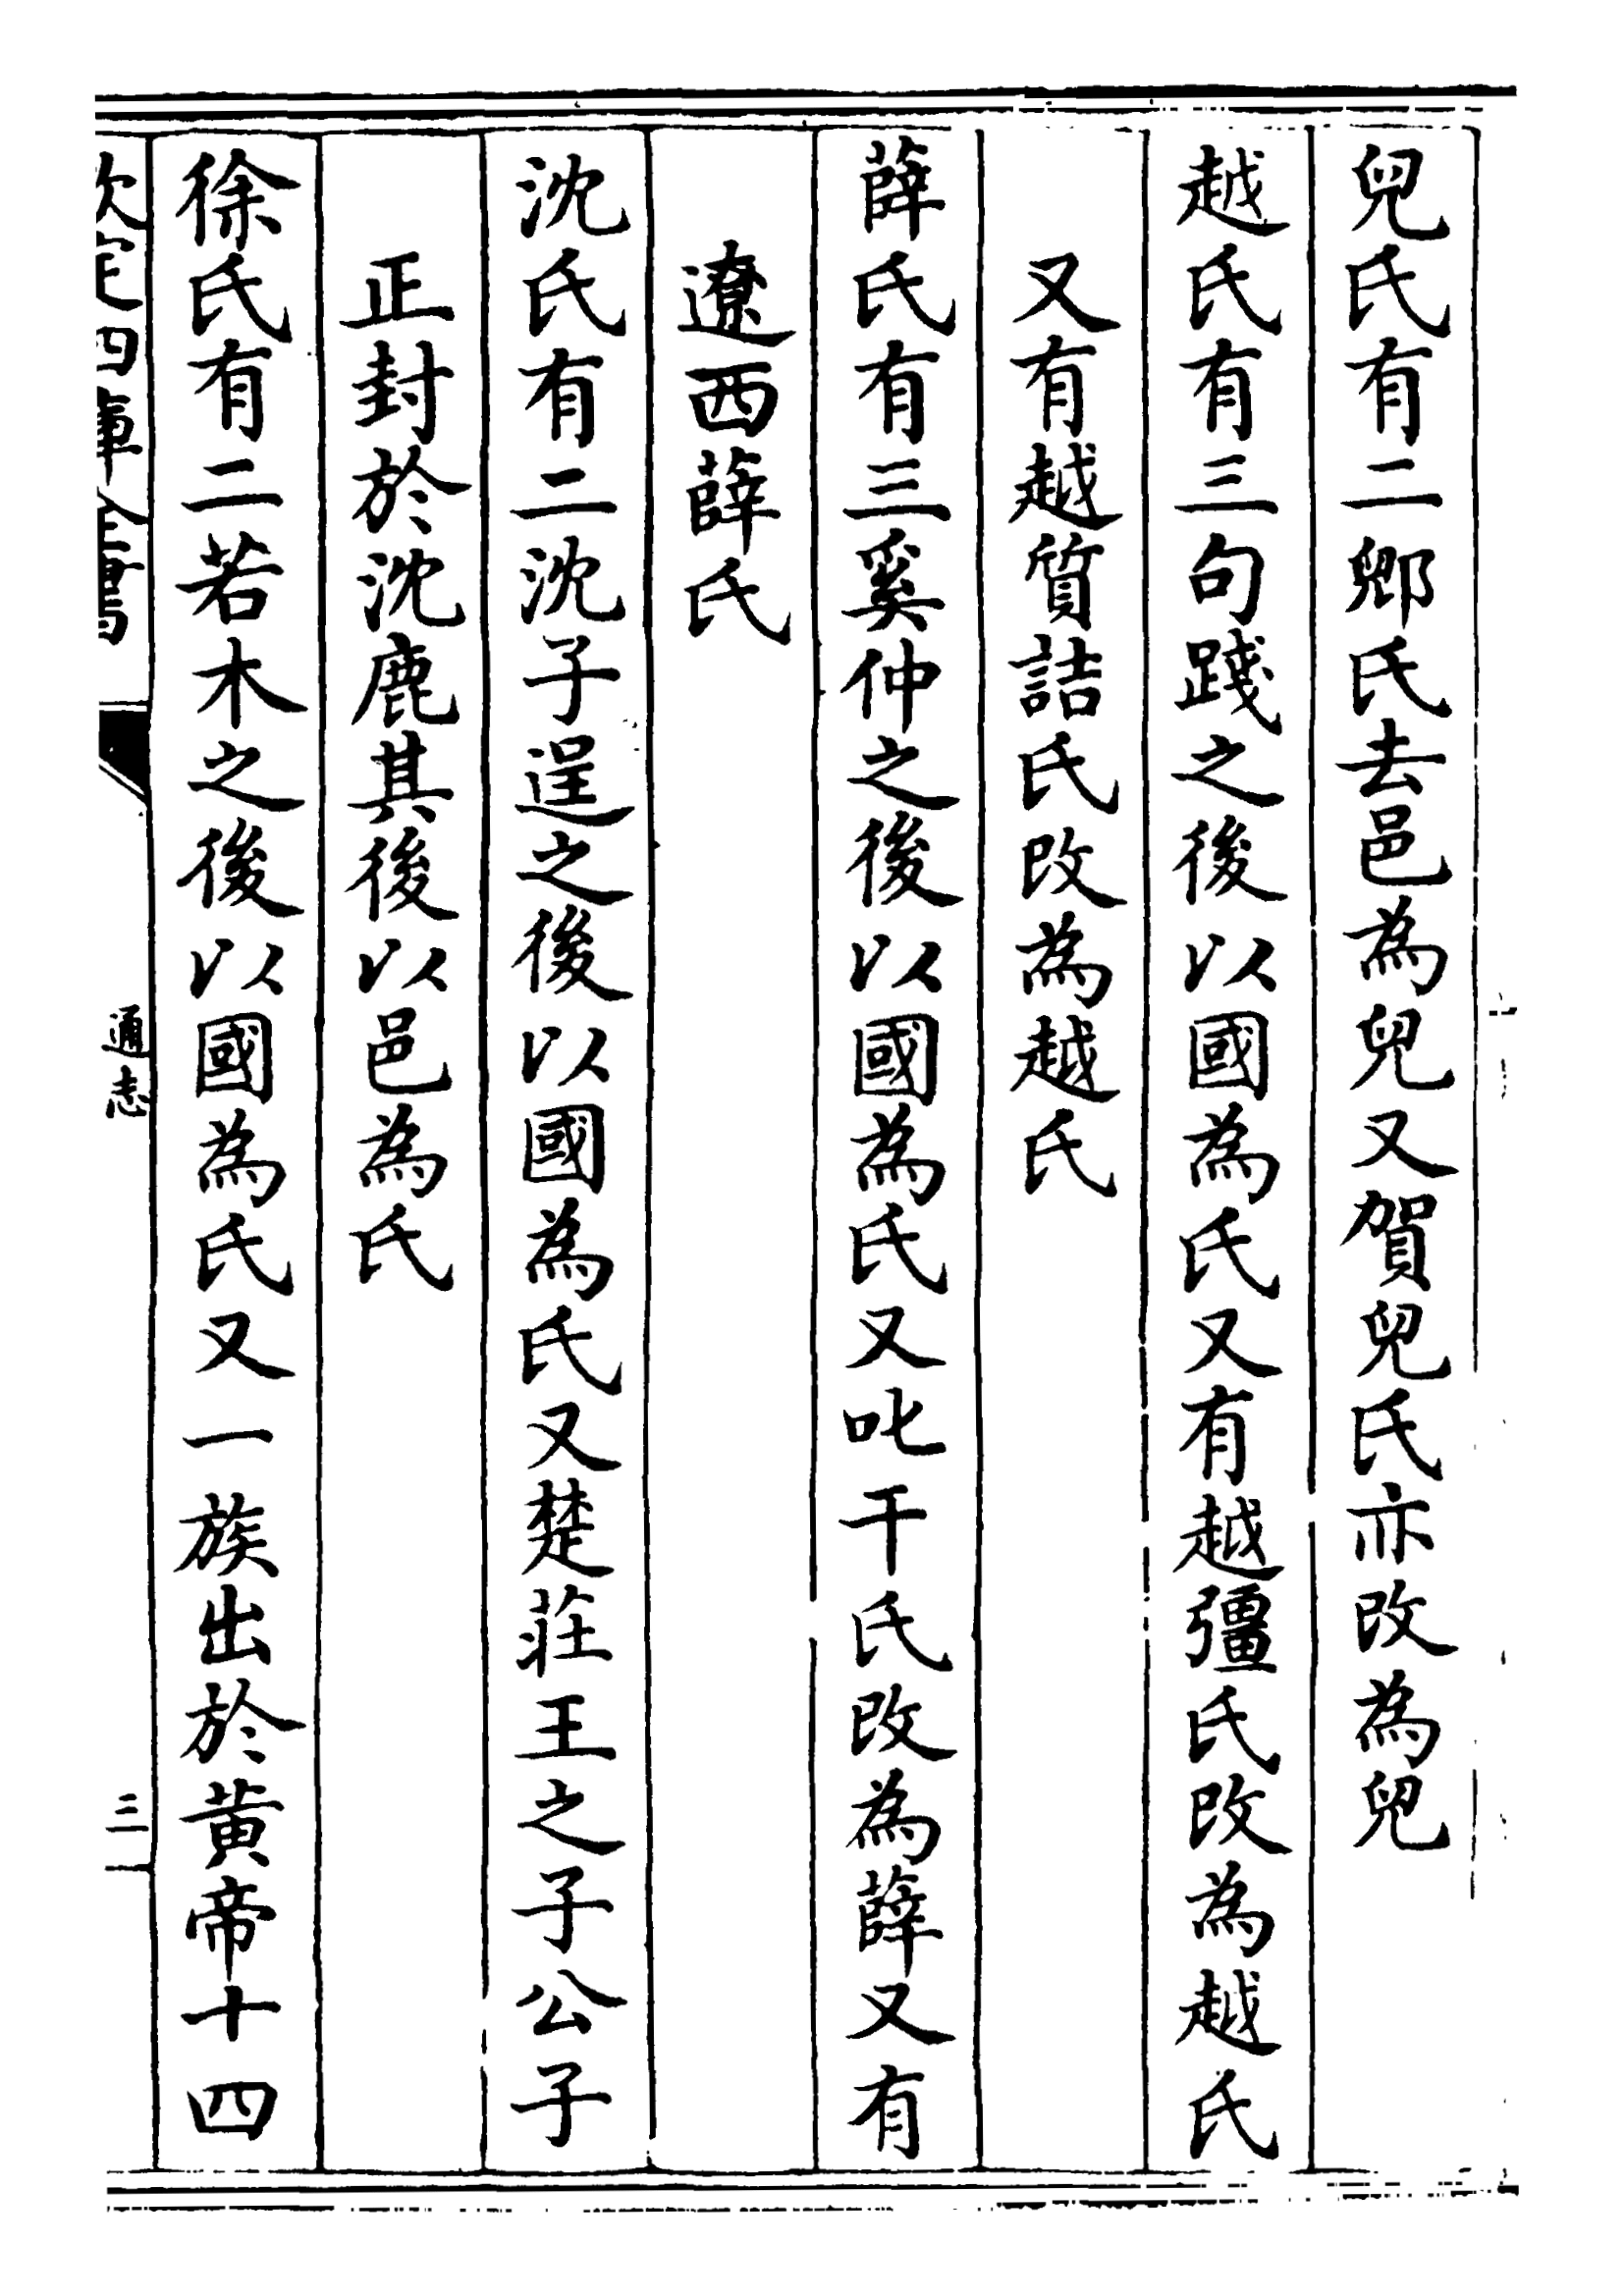 兒氏有二郷氏去邑為兒又賀兒氏亦改為兒
越氏有三句踐之後以國為氏又有越彊氏改為越氏
又有越質詰氏改為越氏
薛氏有三奚仲之後以國為氏又叱干氏改為薛又有
遼西薛氏
沈氏有二沈子逞之後以國為氏又楚莊王之子公子
正封於沈鹿其後以邑為氏
徐氏有二若木之後以國為氏又一族出於黃帝十四
欽定四庫全書
通志
三